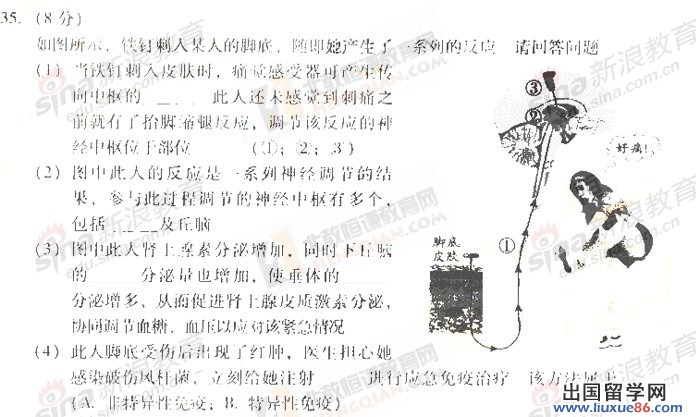 35. (8 分)
如图所示，铁钉刺入某人的脚底，随即她产生了一系列的反应 请回答问题
(1) 当铁钉刺入皮肤时，痛觉感受器可产生传
向中枢的 ____ 此人还未感觉到刺痛之
前就有了抬脚缩腿反应，调节该反应的神
经中枢位于部位 (①；②；③)
(2) 图中此人的反应是一系列神经调节的结
果，参与此过程调节的神经中枢有多个，
包括 ____ 及丘脑
(3) 图中此人肾上腺素分泌增加，同时下丘脑
的 分泌量也增加，使垂体的
分泌增多，从而促进肾上腺皮质激素分泌，
协同调节血糖、血压以应对该紧急情况
(4) 此人脚底受伤后出现了红肿，医生担心她
感染破伤风杆菌，立刻给她注射 进行应急免疫治疗 该方法属于
(A. 非特异性免疫；B. 特异性免疫)
③
②
①
好痛!
脚底
皮肤
sina新浪教育
出国留学网
www.liuxue86.com